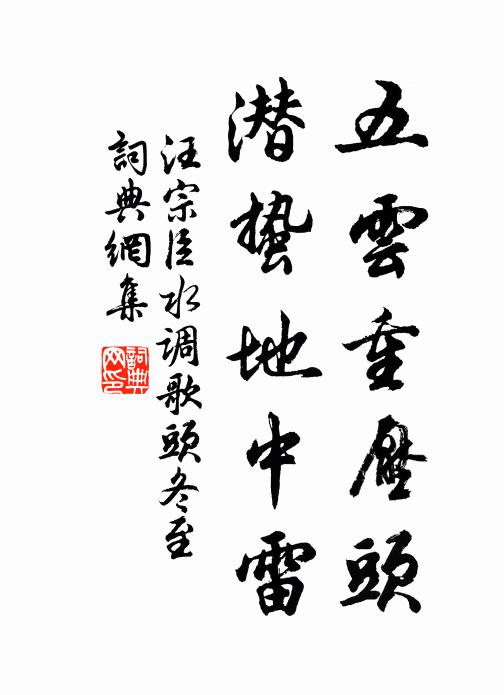 五雲重壓頭
潜蛰地中雷
汪宗臣水调歌頭冬至
詞典網集
詞典網印